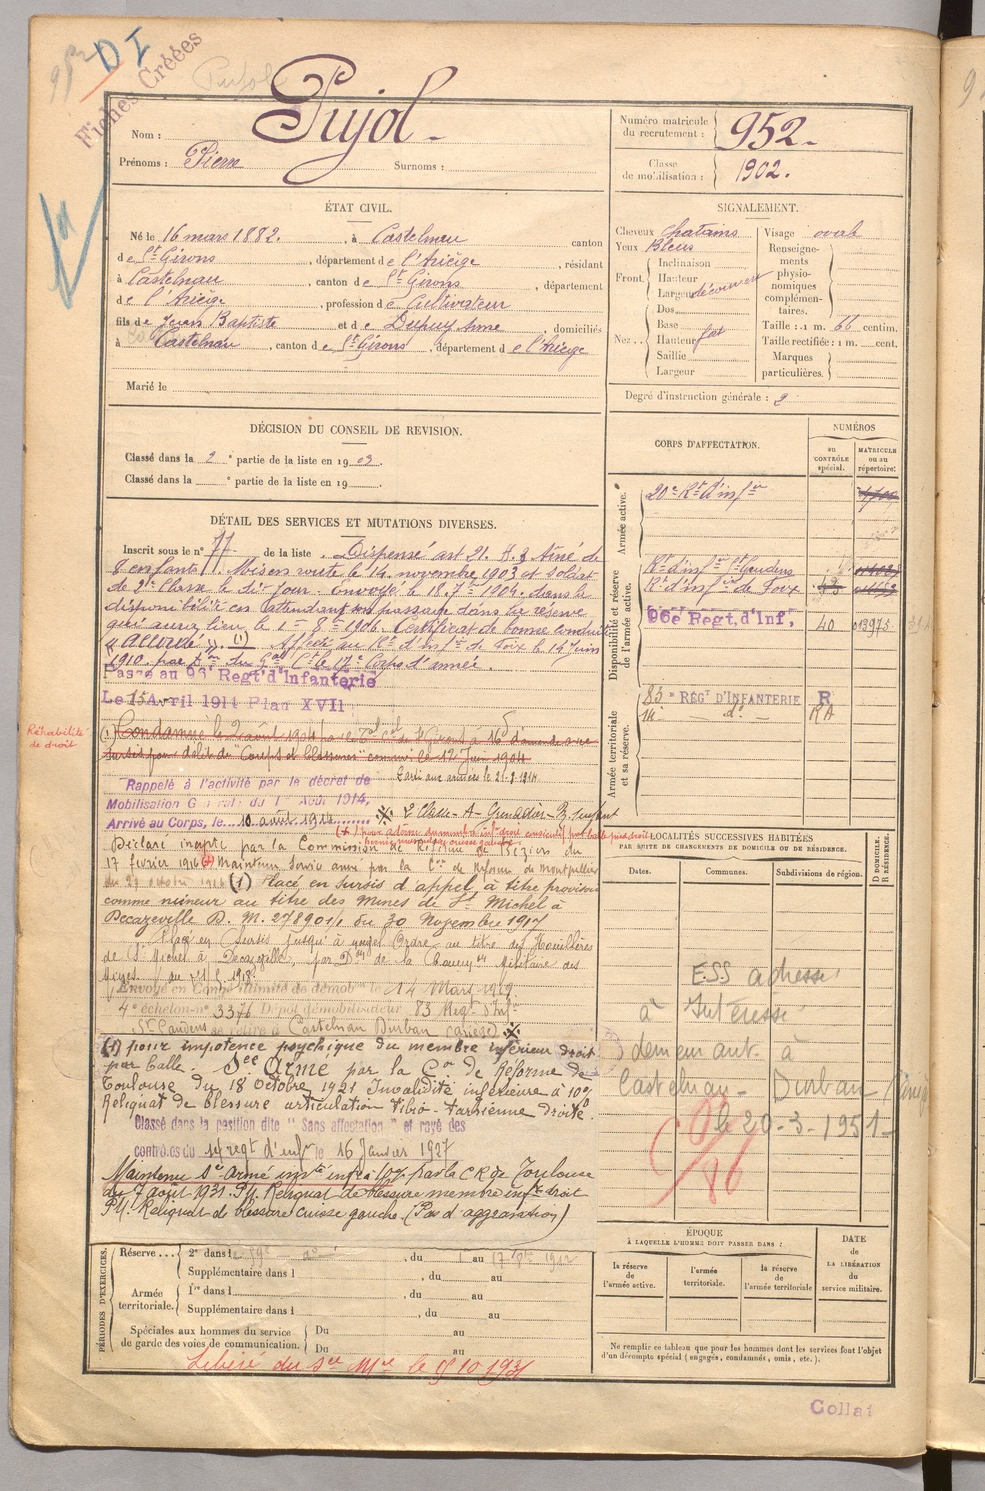 952
D I
Fiches Créées
Pujol
Nom : Pujol
Prénoms : Pierre Surnoms :
Numéro matricule du recrutement : 952
Classe de mobilisation : 1902.
ÉTAT CIVIL.
Né le 16 mars 1882. , à Castelnau canton
de St Girons , département de l'Ariège , résidant
à Castelnau , canton de St Girons , département
de l'Ariège , profession de Cultivateur
fils de Jean Baptiste et de Dupuy Anne , domiciliés
à Castelnau , canton de St Girons , département de l'Ariège
Marié le
SIGNALEMENT.
Cheveux chatains
Yeux Bleus
Front. Inclinaison
Hauteur
Largeur découvert
Nez.. Dos
Base
Hauteur fort
Saillie
Largeur
Visage ovale
Renseignements physionomiques complémentaires.
Taille : 1 m. 66 centim.
Taille rectifiée : 1 m. cent.
Marques particulières.
Degré d'instruction générale : 2
DÉCISION DU CONSEIL DE REVISION.
Classé dans la 2e partie de la liste en 1903.
Classé dans la e partie de la liste en 19
DÉTAIL DES SERVICES ET MUTATIONS DIVERSES.
Inscrit sous le n° 77 de la liste . Dispensé art 21. Aîné de
8 enfants. Mis en route le 14 novembre 1903 et soldat
de 2e Classe le dit jour. Envoyé le 18 7bre 1904 dans la
disponibilité en attendant son passage dans la réserve
qui aura lieu le 1er 8bre 1906. Certificat de bonne conduite
"Accordé". (1) Affecté au Rt d'inf de Foix le 14 juin
1910 par Don du Gal Ct le 17e Corps d'armée.
Passé au 96e Regt d'Infanterie
Le 15 Avril 1914 Plan XVII
Réhabilité de droit
(1) Condamné le 2 août 1904 par le St Girons à 16f d'amende avec
sursis pour délit de "Coups et blessures" commis le 12 Juin 1904
Rappelé à l'activité par le décret de
Mobilisation Générale du 1er Août 1914,
Arrivé au Corps, le 10 août 1914
Parti aux armées le 21-9-1914
2e Classe - A - Grenadier -
Déclaré inapte par la Commission de Réforme de Béziers du
17 février 1916 Maintenu Service armé par la Con de Réforme de Montpellier
du 27 octobre 1916 (1) Placé en Sursis d'appel à titre provisoire
comme mineur au titre des Mines de St Michel à
Decazeville D. M. 27890 1/1 du 30 Novembre 1917
Placé en Sursis jusqu'à nouvel Ordre au titre des Houillères
de St Michel à Decazeville,
Envoyé en Congé illimité de démobon le 14 Mars 1919
4e échelon n° 3376 Dépôt démobilisateur 83 Régt d'Infie
St Gaudens se retire à Castelnau Durban (Ariège)
(1) pour impotence psychique du membre inférieur droit
par balle. See Armé par la Con de Réforme de
Toulouse du 18 Octobre 1921 Invalidité inférieure à 10%
Reliquat de blessure articulation tibio-tarsienne droite.
Classé dans la position dite "Sans affectation" et rayé des
contrôles du 14 regt d'infie le 16 Janvier 1927
Maintenu Sce Armé infre à 10% par la C R de Toulouse
du 7 août 1931. Pll. Reliquat de blessure membre inf. droit
Pll. Reliquat de blessure cuisse gauche. (Pas d'aggravation)
CORPS D'AFFECTATION.
NUMÉROS
au CONTRÔLE spécial.
MATRICULE ou au répertoire.
Armée active.
20e Rt d'infie
Disponibilité et réserve de l'armée active.
Rt d'infie St Gaudens
Rt d'infie de Foix
96e Regt. d'Inf, 40 013975
Armée territoriale et sa réserve.
83e REGt D'INFANTERIE R
14 - d° - RA
LOCALITÉS SUCCESSIVES HABITÉES
PAR SUITE DE CHANGEMENTS DE DOMICILE OU DE RÉSIDENCE.
Dates. Communes. Subdivisions de région.
D DOMICILE. R RÉSIDENCE.
ESS adressé
à Intéressé
demeurant à
Castelnau-Durban
le 20-3-1951
ÉPOQUE
À LAQUELLE L'HOMME DOIT PASSER DANS :
la réserve de l'armée active.
l'armée territoriale.
la réserve de l'armée territoriale
DATE de LA LIBÉRATION du service militaire.
Ne remplir ce tableau que pour les hommes dont les services font l'objet
d'un décompte spécial (engagés, condamnés, omis, etc.).
PÉRIODES D'EXERCICES.
Réserve... 2e dans le 59e , du 1 au 17 1912
Supplémentaire dans l , du au
Armée territoriale. 1re dans l , du au
Supplémentaire dans l , du au
Spéciales aux hommes du service
de garde des voies de communication.
Du au
Du au
Libéré du Sce Mre le 15 10 1931
Collat